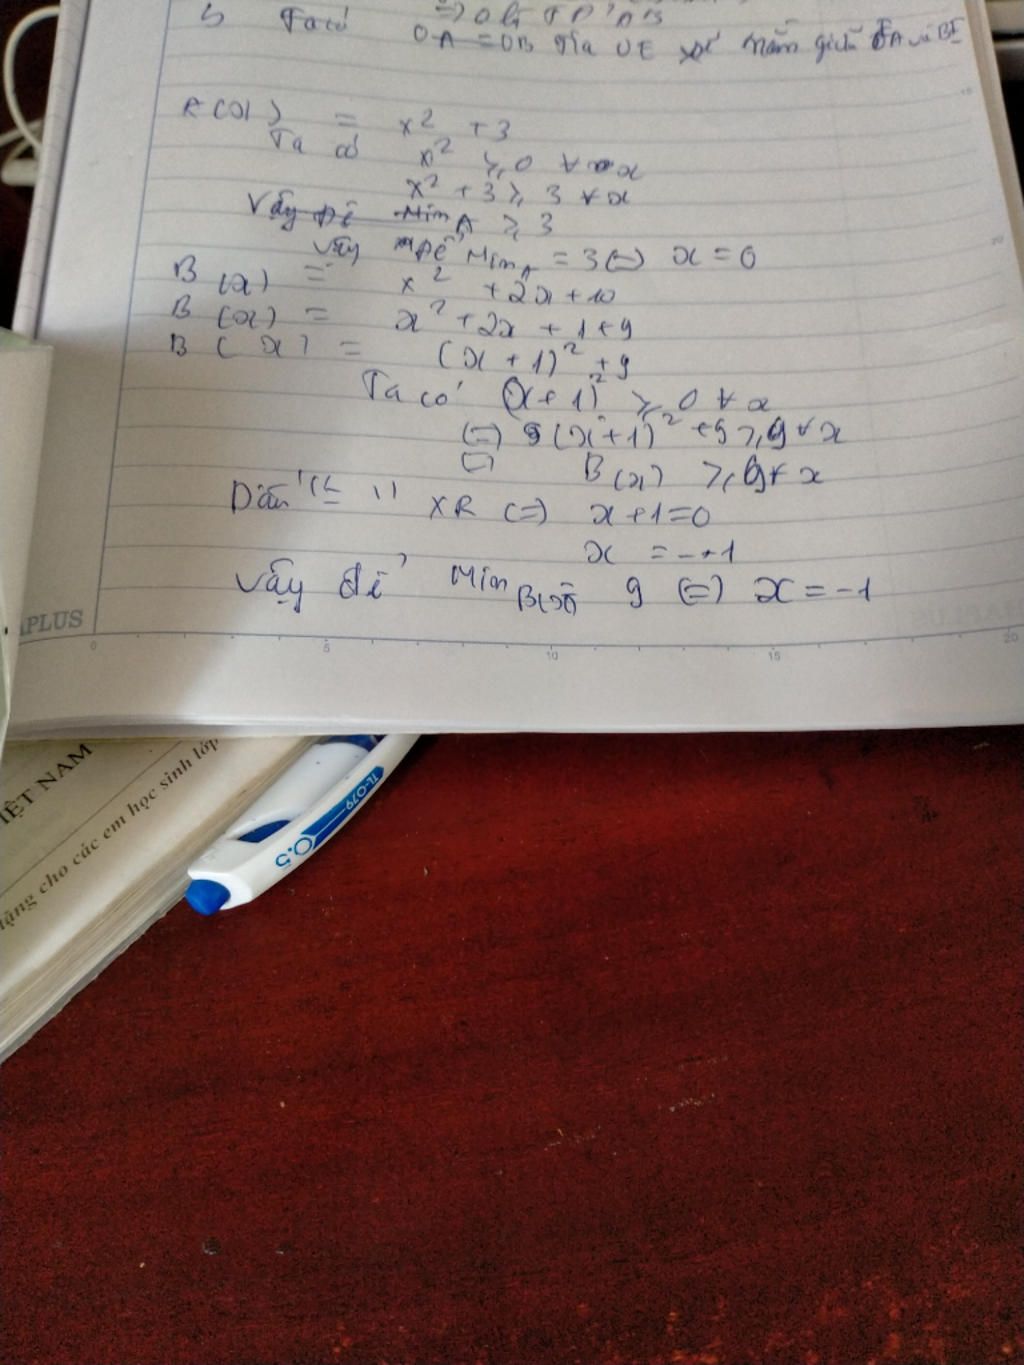 Ta có
OA = OB nằm giữa
A(x) = x² + 3
Ta có x² ≥ 0 ∀ x
x² + 3 ≥ 3 ∀ x
Vậy để Min A ≥ 3
Vậy để Min A = 3 (=) x = 0
B(x) = x² + 2x + 10
B(x) = x² + 2x + 1 + 9
B(x) = (x + 1)² + 9
Ta có (x + 1)² ≥ 0 ∀ x
(=) (x + 1)² + 9 ≥ 9 ∀ x
(=) B(x) ≥ 9 ∀ x
Dấu "=" XR (=) x + 1 = 0
x = -1
Vậy để Min B(x) = 9 (=) x = -1
APLUS
0 5 10 15 20
IỆT NAM
tặng cho các em học sinh lớp
TL-079
0.5